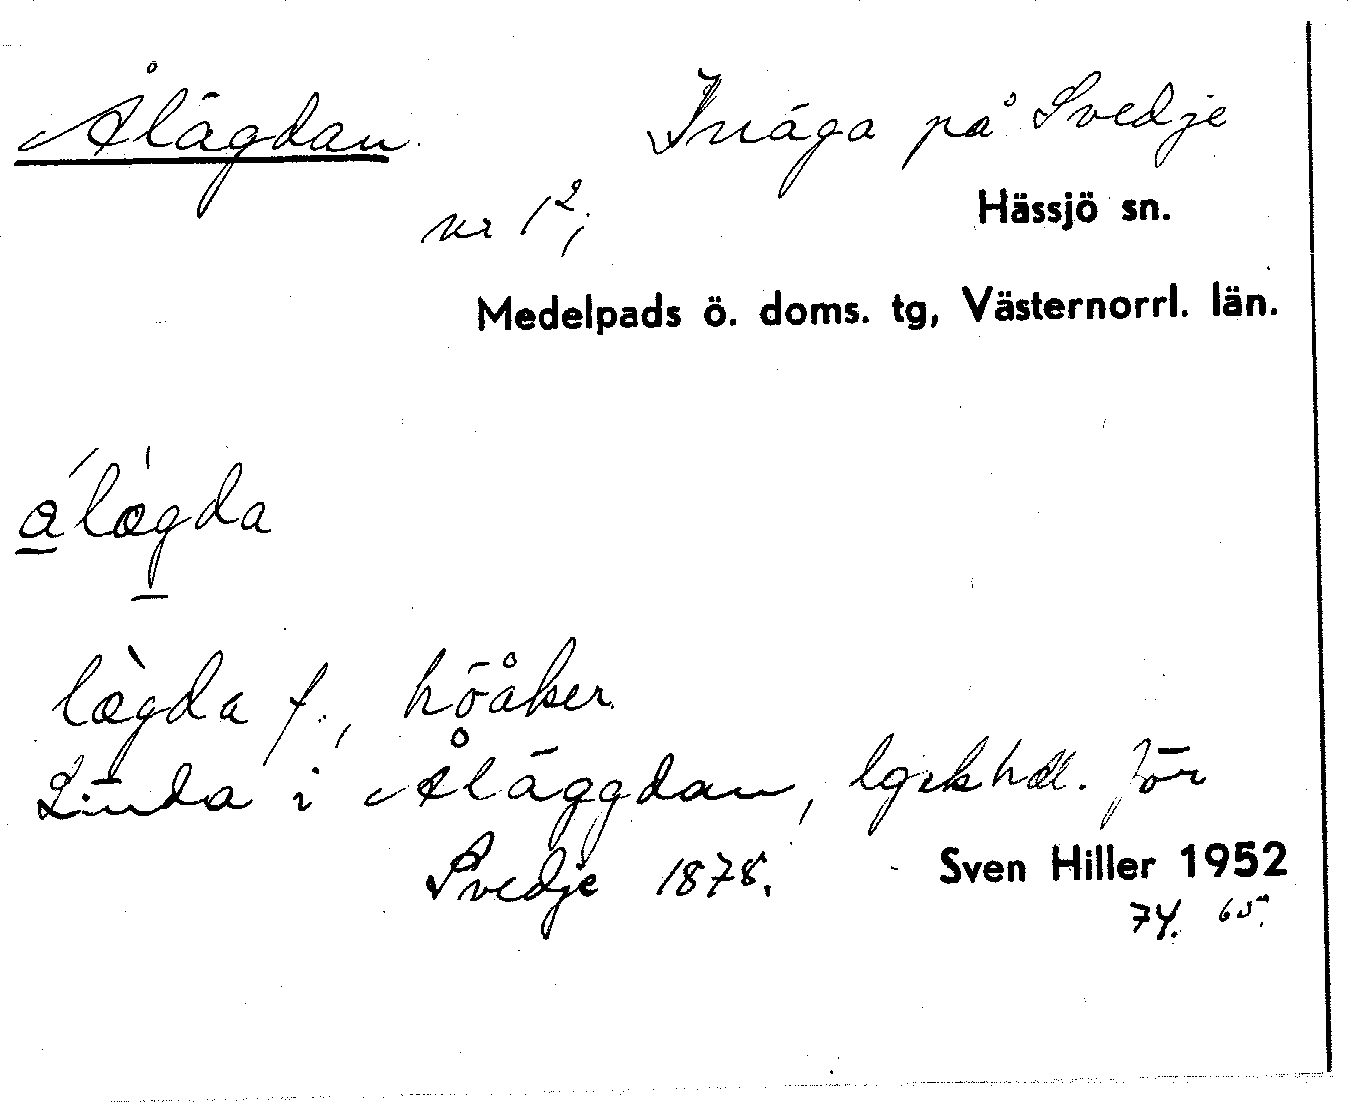 Ålägdan. Inäga på Svedje
nr 1²; Hässjö sn.
Medelpads ö. doms. tg, Västernorrl. län.
álæ̀gda
læ̀gda f., höåker.
Linda i Åläggdan, lgskhdl. för
Svedje 1878. Sven Hiller 1952
74. 65.